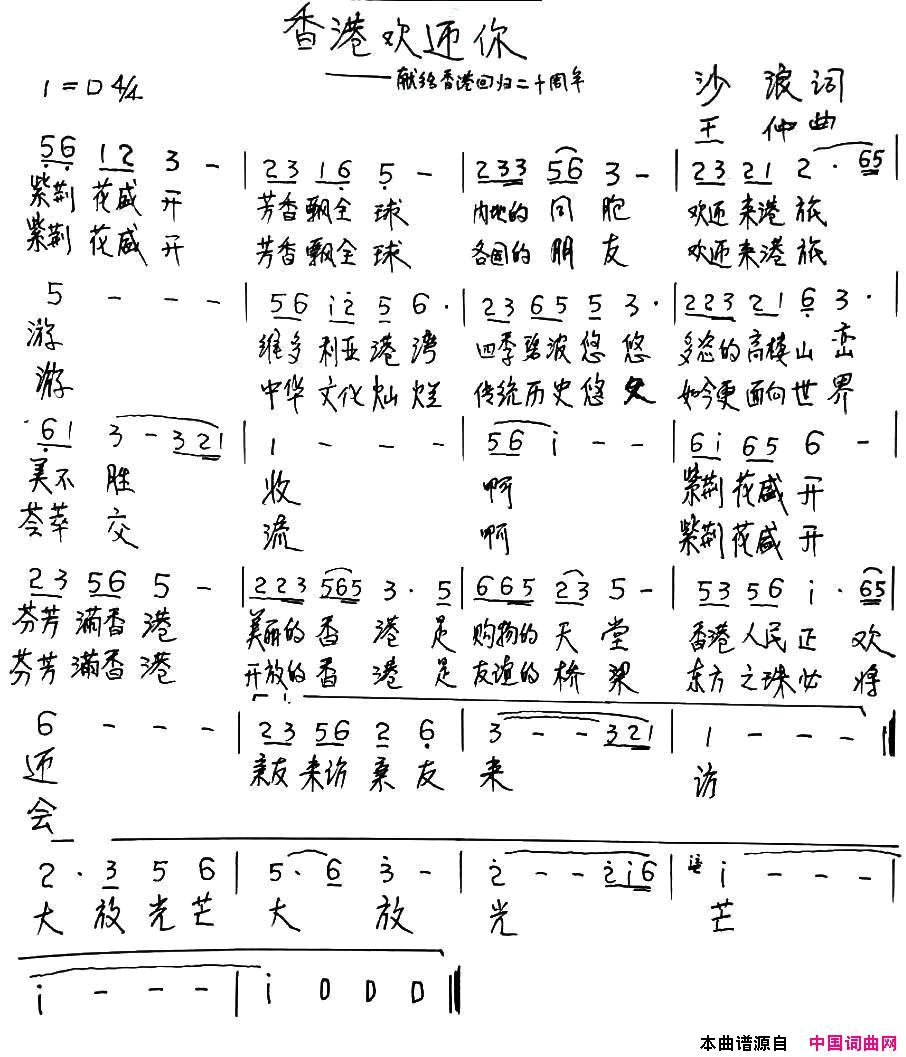 香港欢迎你
——献给香港回归二十周年
1=D 4/4
沙浪词
王仲曲
56 12 3 - | 23 16 5 - | 233 56 3 - | 23 21 2 · 65
紫荆花盛开 芳香飘全球 内地的同胞 欢迎来港旅
紫荆花盛开 芳香飘全球 各国的朋友 欢迎来港旅
5 - - - | 56 i2 5 6 · | 23 65 5 3 · | 223 21 6 3 · |
游 维多利亚港湾 四季碧波悠悠 多姿的高楼山峦
游 中华文化灿烂 传统历史悠久 如今更面向世界
61 3 - 321 | 1 - - - | 56 i - - | 6i 65 6 - |
美不胜 收 啊 紫荆花盛开
荟萃交 流 啊 紫荆花盛开
23 56 5 - | 223 565 3 · 5 | 665 23 5 - | 53 56 i · 65
芬芳满香港 美丽的香港是 购物的天堂 香港人民正欢
芬芳满香港 开放的香港是 友谊的桥梁 东方之珠必将
1.
6 - - - | 23 56 2 6 | 3 - - 321 | 1 - - - ‖
迎 亲友来访亲友 来 访
会
2 · 3 5 6 | 5 · 6 3 - | 2 - - 2i6 | i - - -
大放光芒 大放 光 芒
i - - - | i 0 0 0 ‖
本曲谱源自 中国词曲网